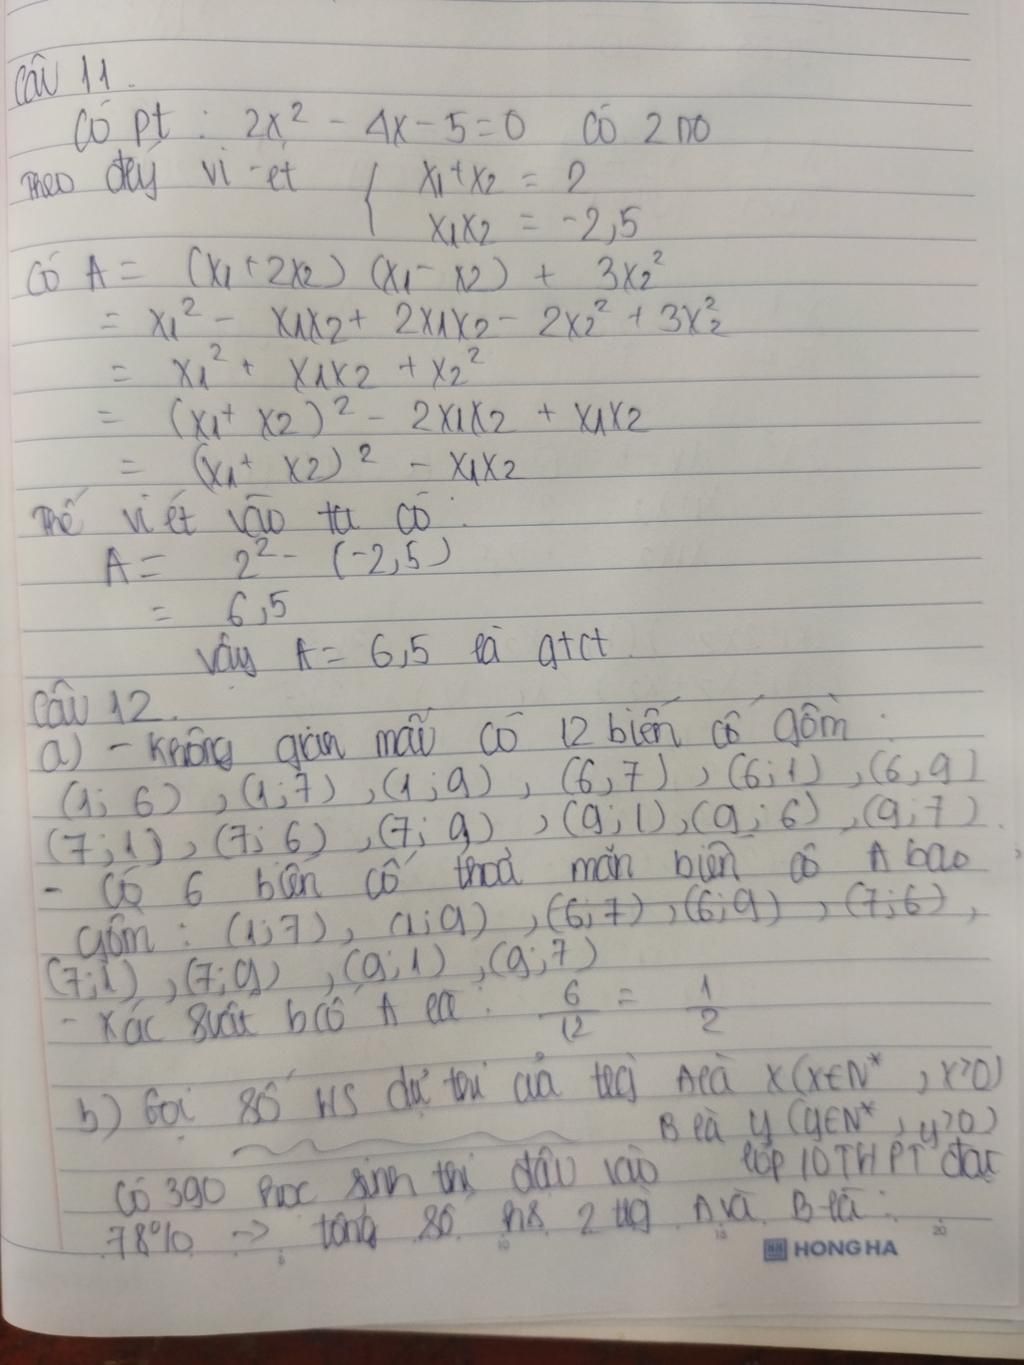 Câu 11.
Có pt : 2x² - 4x - 5 = 0 có 2 no
Theo đlý vi-ét { x1 + x2 = 2
x1x2 = -2,5
Có A = (x1 + 2x2) (x1 - x2) + 3x2²
= x1² - x1x2 + 2x1x2 - 2x2² + 3x2²
= x1² + x1x2 + x2²
= (x1 + x2)² - 2x1x2 + x1x2
= (x1 + x2)² - x1x2
Thế vi ét vào ta có :
A = 2² - (-2,5)
= 6,5
Vậy A = 6,5 là gtct.
Câu 12.
a) - Không gian mẫu có 12 biến cố gồm :
(1; 6) , (1;7) , (1;9) , (6,7) , (6;1) , (6,9)
(7;1) , (7;6) , (7;9) , (9;1) , (9;6) , (9,7)
- Có 6 biến cố thoả mãn biến cố A bao
gồm : (1;7) , (1;9) , (6;7) , (6;9) , (7;6) ,
(7;1) , (7;9) , (9;1) , (9;7)
- Xác suất bcố A là : 6/12 = 1/2
b) Gọi số HS dự thi của trg A là x (x∈N* , x>0)
B là y (y∈N* , y>0)
Có 390 học sinh thi đâu vào lớp 10 THPT đạt
78% → tổng số hs 2 trg A và B là :
HONG HA